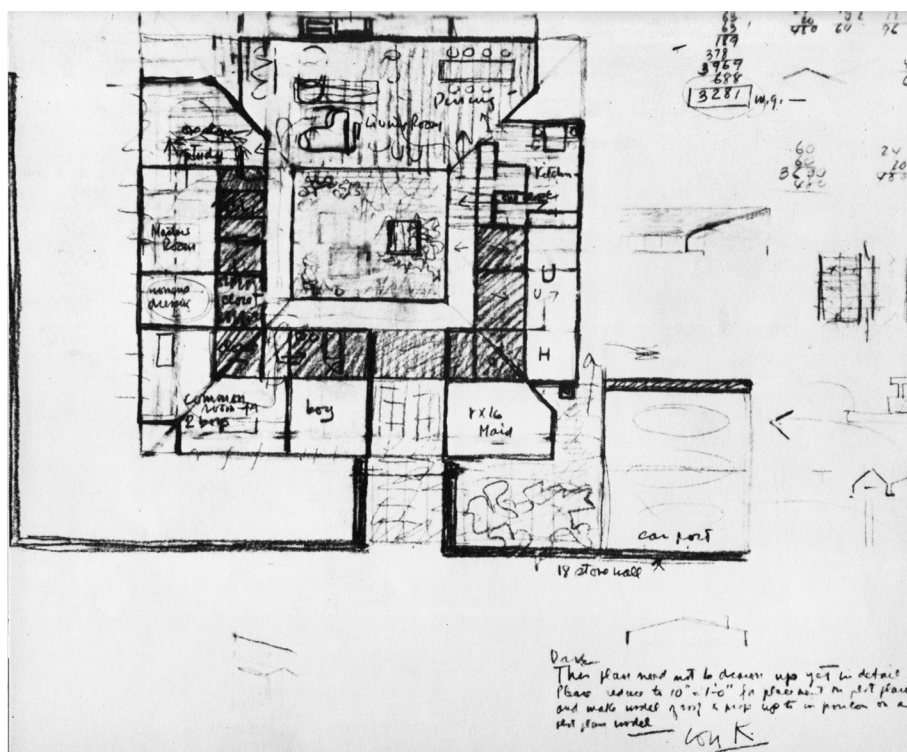 63
63
189
378
3969
688
3281
480 64 96
60
60
3600
480
24
20
480
Dining
Living Room
study
Kitchen
Masters
Room
closet
closet
U
U
H
common
room for
2 boys
boy
8 x 16
Maid
car port
18 stone wall
Dave
This plan need not be drawn up yet in detail
Please reduce to 10" = 1'-0" for placement on plot plan
and make model of roof & prop up to in position on a
plot plan model
Lou K.